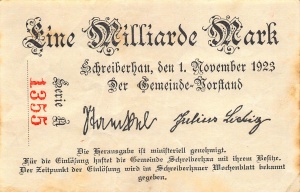 Eine Milliarde Mark
Schreiberhau, den 1. November 1923
Der Gemeinde-Vorstand
Serie A
1355
Die Herausgabe ist ministeriell genehmigt.
Für die Einlösung haftet die Gemeinde Schreiberhau mit ihrem Besitze.
Der Zeitpunkt der Einlösung wird im Schreiberhauer Wochenblatt bekannt
gegeben.